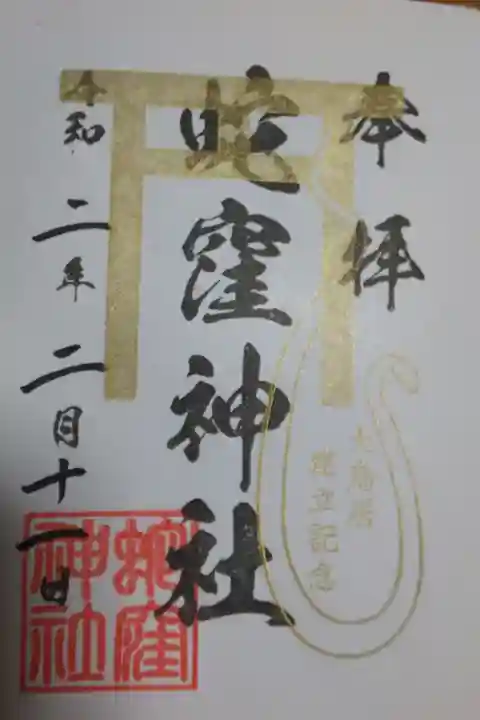 奉拝
大鳥居
建立記念
蛇窪神社
蛇窪
神社
令和二年二月十一日